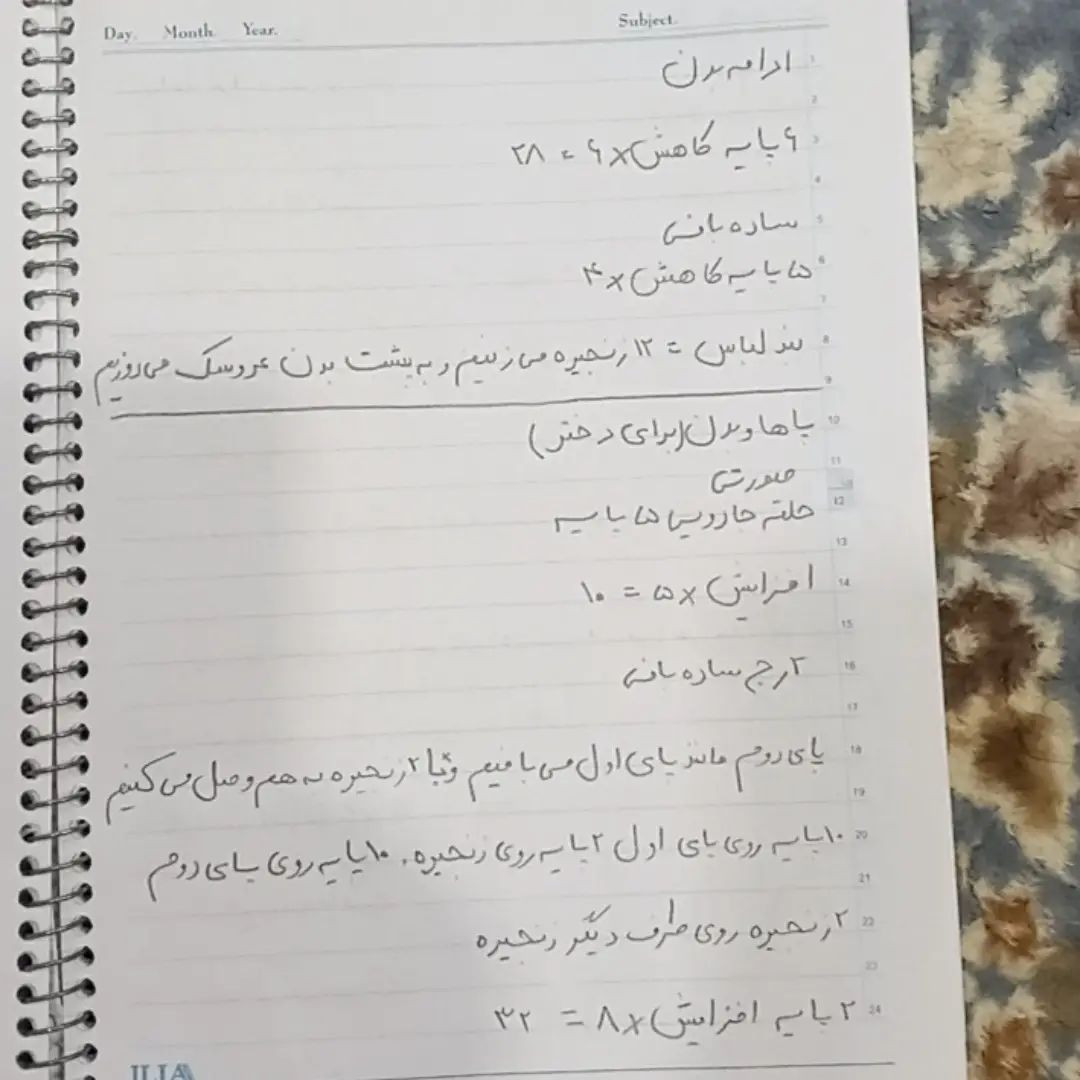 Day. Month. Year. Subject.
ادامه بدن
۶ پایه کاهش × ۶ = ۲۸
ساده بافی
۵ پایه کاهش × ۴
بند لباس = ۱۲ زنجیره می زنیم و به پشت بدن عروسک می دوزیم
پاها و بدن (برای دختر)
صورتی
حلقه جادویی ۵ پایه
افزایش × ۵ = ۱۰
۲ رج ساده بافی
پای دوم مانند پای اول می بافیم و با ۲ زنجیره به هم وصل می کنیم
۱۰ پایه روی پای اول ۲ پایه روی زنجیره. ۱۰ پایه روی پای دوم
۲ زنجیره روی طرف دیگر زنجیره
۲ پایه افزایش × ۸ = ۳۲
ILIA